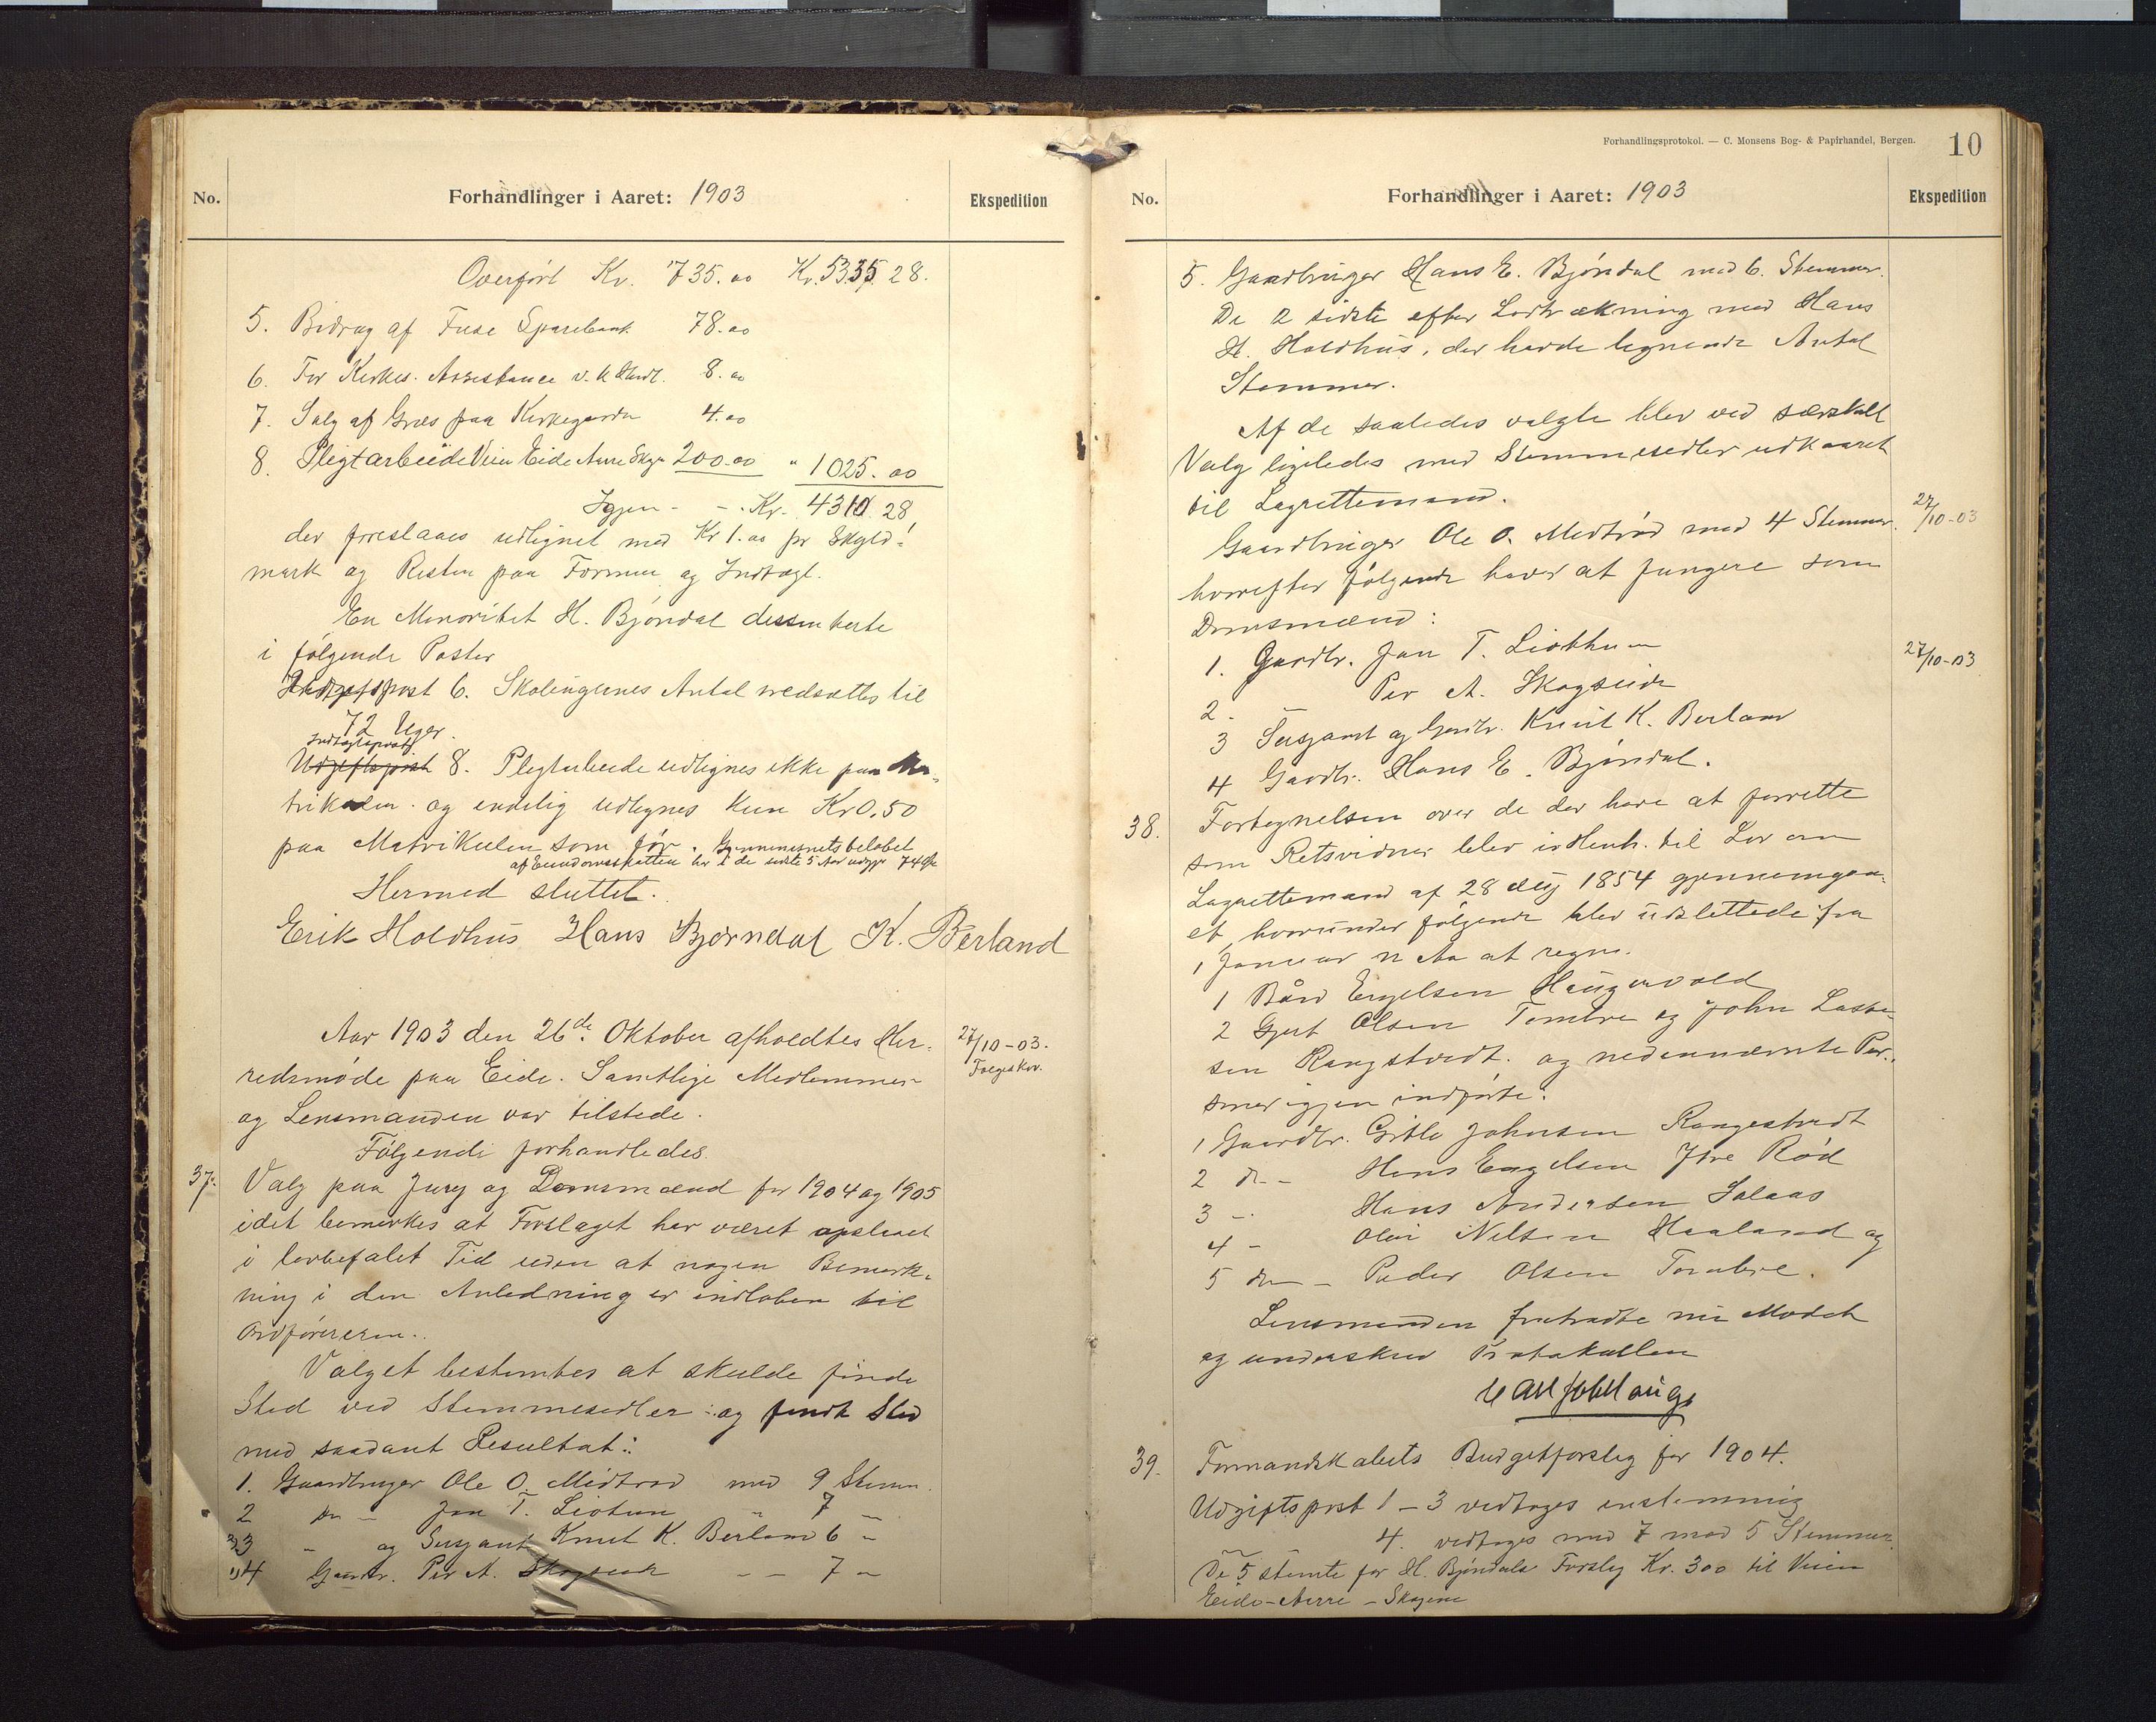 No.
Forhandlinger i Aaret: 1903
Ekspedition
Overført Kr. 735.00 Kr. 5335.28.
5. Bidrag af Fuse Sparebank 78.00
6. For Kirkes. Assistance 8.00
7. Salg af Græs paa Kirkegaarden 4.00
8. Pligtarbeide Veien Eide 200.00 " 1025.00
Igjen - - Kr. 4310.28
der foreslaaes udlignet med Kr 1.00 pr Skyld-
mark og Resten paa Formue og Indtægt.
En Minoritet H. Bjøndal dessenterte
i følgende Poster
Udgiftspost 6. Skolingernes Antal nedsættes til
72 Uger.
Indtægtspost
Udgiftspost 8. Pligtarbeide udlignes ikke paa Ma-
trikulen og endelig udlignes kun Kr 0,50
paa Matrikulen som før. Gjennemsnitsbeløbet
af Eiendomsskatten har i de sidste 5 Aar udgjr 74 Øre
Hermed sluttet.
Erik Holdhus Hans Bjørndal K. Berland
Aar 1903 den 26de Oktober afholdtes Her-
redsmøde paa Eide. Samtlige Medlemmer
og Lensmanden var tilstede.
27/10-03.
Følgende forhandledes.
37. Valg paa Jury og Domsmænd for 1904 og 1905
idet bemerkes at Forslaget har været opslaaet
i lovbefalet Tid uden at nogen Bemærk-
ning i den Anledning er indløben til
Ordføreren.
Valget bestemtes at skulde finde
Sted ved Stemmesedler og fandt Sted
med saadant Resultat:
1. Gaardbruger Ole O. Midtrød med 9 Stemm.
2 do - Jon T. Liotun " 7 -
3 " og Sersjant Knut K. Berland 6 -
4 Gaardbr. Per A. Skogseide - - 7 -
Forhandlingsprotokol. — C. Monsens Bog- & Papirhandel, Bergen.
10
No.
Forhandlinger i Aaret: 1903
Ekspedition
5. Gaardbruger Hans E. Bjøndal med 6. Stemmer.
De 2 sidste efter Lodtrækning med Hans
H. Holdhus, der havde lignende Antal
Stemmer.
Af de saaledes valgte blev ved særskilt
Valg ligeledes med Stemmesedler udkaaret
til Lagrettemand.
Gaardbruger Ole O. Midtrød med 4 Stemmer.
27/10-03
hvorefter følgende haver at fungere som
Domsmænd:
1. Gardbr. Jon T. Liothun
27/10-03
2. Per A. Skogseide
3 Sersjant og Gardbr. Knut K. Berland
4 Gardbr. Hans E. Bjøndal.
38. Fortegnelsen over de der have at forrette
som Retsvidner blev i Henh. til Lov om
Lagrettemænd af 28 1854 gjennemgaa-
et, hvorunder følgende blev udslettede fra
1 Januar n Aa at regne.
1 Bård Engelsen Haugervold
2 Gjert Olsen Tombre og John Lasse-
sen Rangstvedt. og nedennævnte Per-
soner igjen indførte:
1 Gaardbr. Gitle Johnsen Rangestvedt
2 do - Hans Engelsen Ytre Rød
3 - Hans Andersen Salaas
4 - Oluv Nilsen Haaland og
5 do - Peder Olsen Tombre.
Lensmanden fratradte nu Mødet
og underskrev Protokollen
39. Formandskabets Budgetforslag for 1904.
Udgiftspost 1-3 vedtoges enstemmig
4. vedtoges med 7 mod 5 Stemmer.
De 5 stemte for H. Bjøndals Forslag Kr. 300 til Veien
Eide-